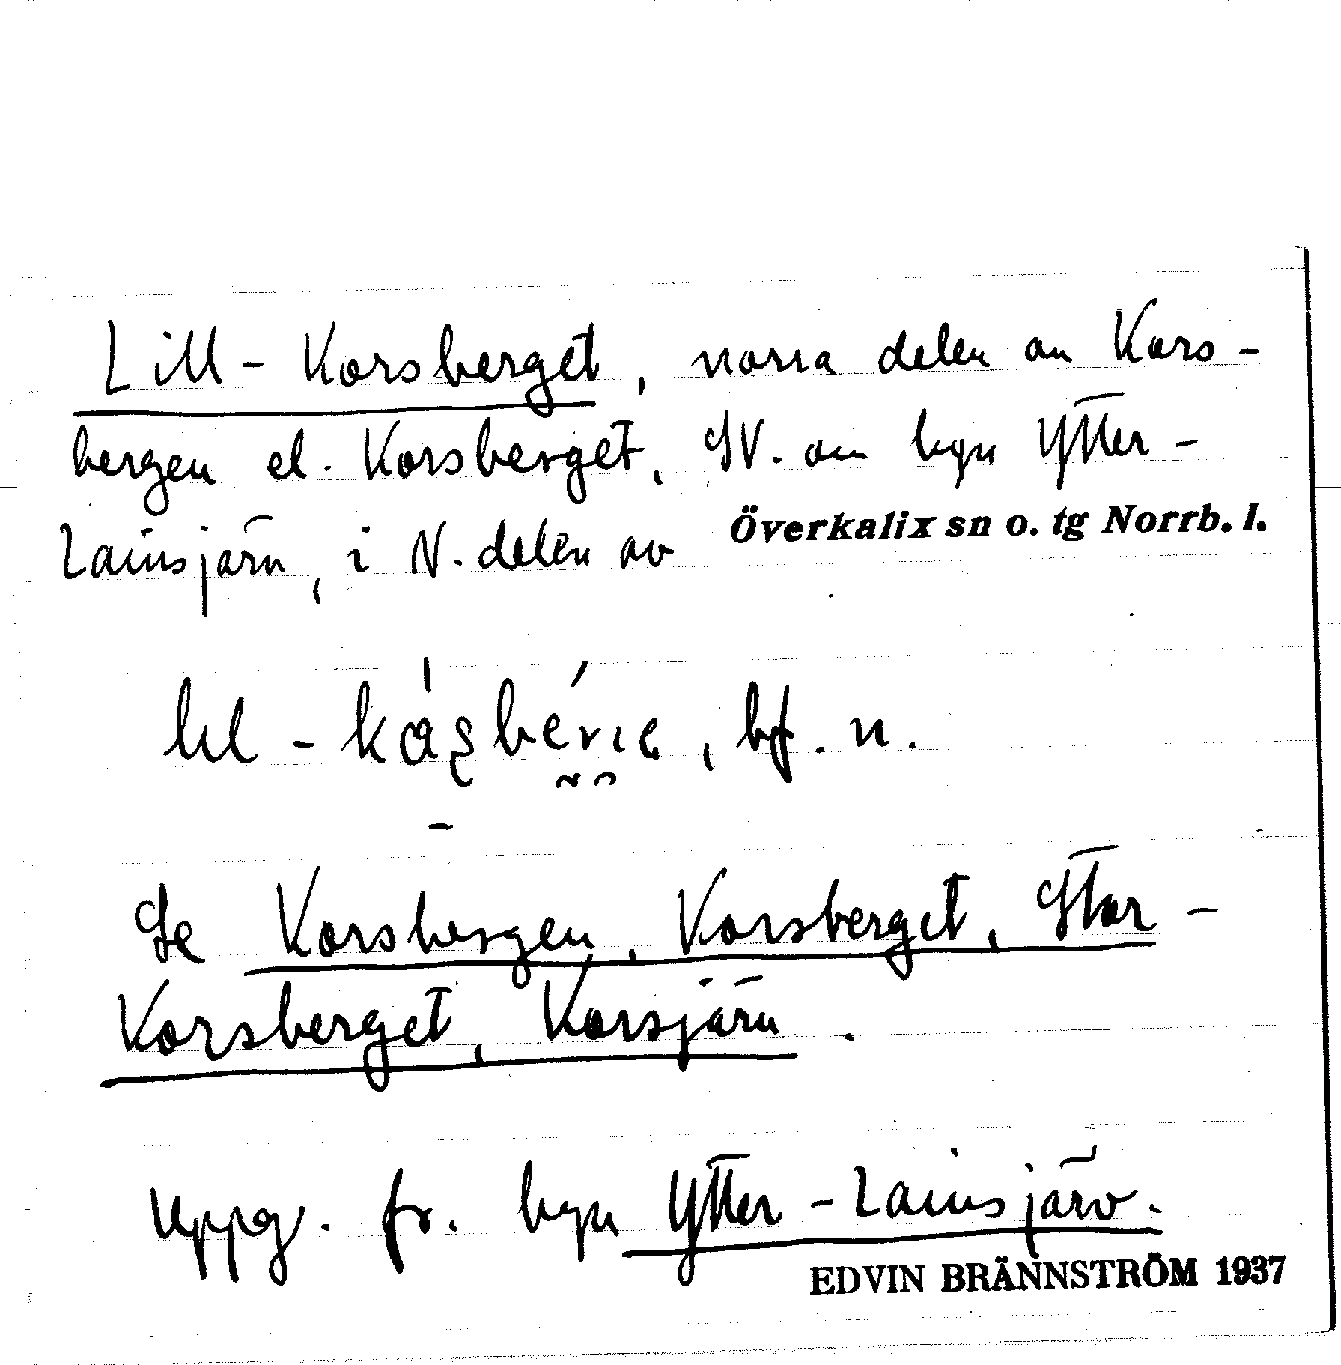 Lill-Korsberget, norra delen av Kors-
bergen el. Korsberget, SV. om byn Ytter-
Lainsjärv, i N. delen av Överkalix sn o. tg Norrb. l.
bf. n.
Se Korsbergen, Korsberget, Stor-
Korsberget, Korsjärv.
Uppg. fr. byn Ytter-Lainsjärv.
EDVIN BRÄNNSTRÖM 1937